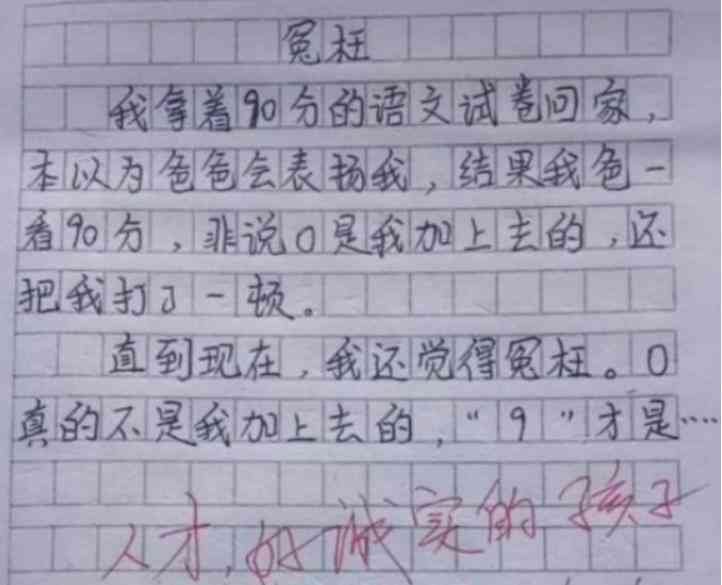 冤枉
我拿着90分的语文试卷回家，
本以为爸爸会表扬我，结果我爸一
看90分，非说0是我加上去的，还
把我打了一顿。
直到现在，我还觉得冤枉。0
真的不是我加上去的，“9”才是……
人才，好诚实的孩子